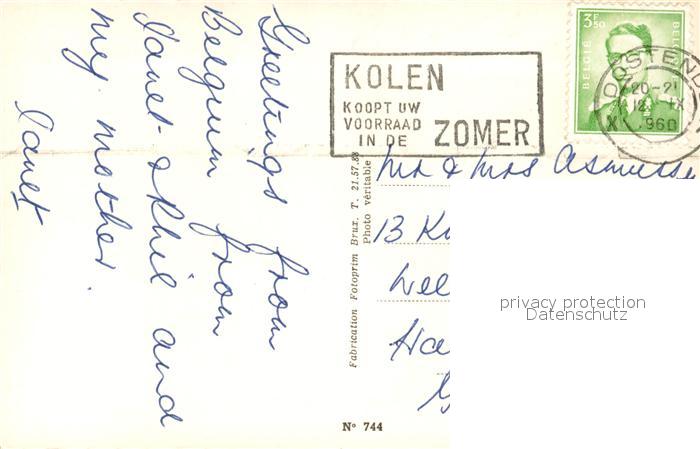 Greetings from
Belgium from
Janet & Phil and
my mother.
Janet
KOLEN
KOOPT UW
VOORRAAD
IN DE ZOMER
3F50
BELGIE
BELGIQUE
OOSTENDE
20-21
12 IX
1960
Mr & Mrs
13
Fabrication Fotoprim Brux. T. 21.57.
Photo véritable
N° 744
privacy protection
Datenschutz